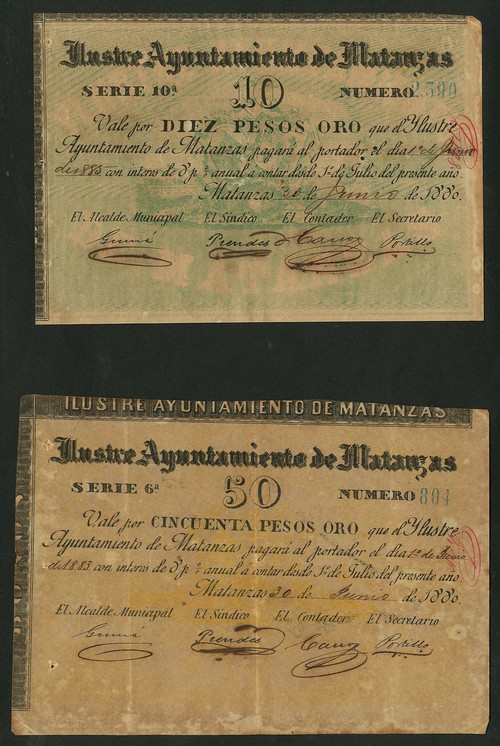 Ilustre Ayuntamiento de Matanzas
SERIE 10ª 10 NUMERO 2590
Vale por DIEZ PESOS ORO que el Ylustre
Ayuntamiento de Matanzas pagará al portador el dia 1º de Junio
de 1885 con interes de 8 p % anual á contar desde 1º de Julio del presente año.
Matanzas 30 de Junio de 1880.
El Alcalde Municipal El Síndico El Contador El Secretario
Prendes Portillo
MATAN
ILUSTRE AYUNTAMIENTO DE MATANZAS
Ilustre Ayuntamiento de Matanzas
SERIE 6ª 50 NUMERO 804
Vale por CINCUENTA PESOS ORO que el Ylustre
Ayuntamiento de Matanzas pagará al portador el dia 1º de Junio
de 1883 con interes de 8 p % anual á contar desde 1º de Julio del presente año
Matanzas 30 de Junio de 1880.
El Alcalde Municipal El Síndico El Contador El Secretario
Prendes Portillo